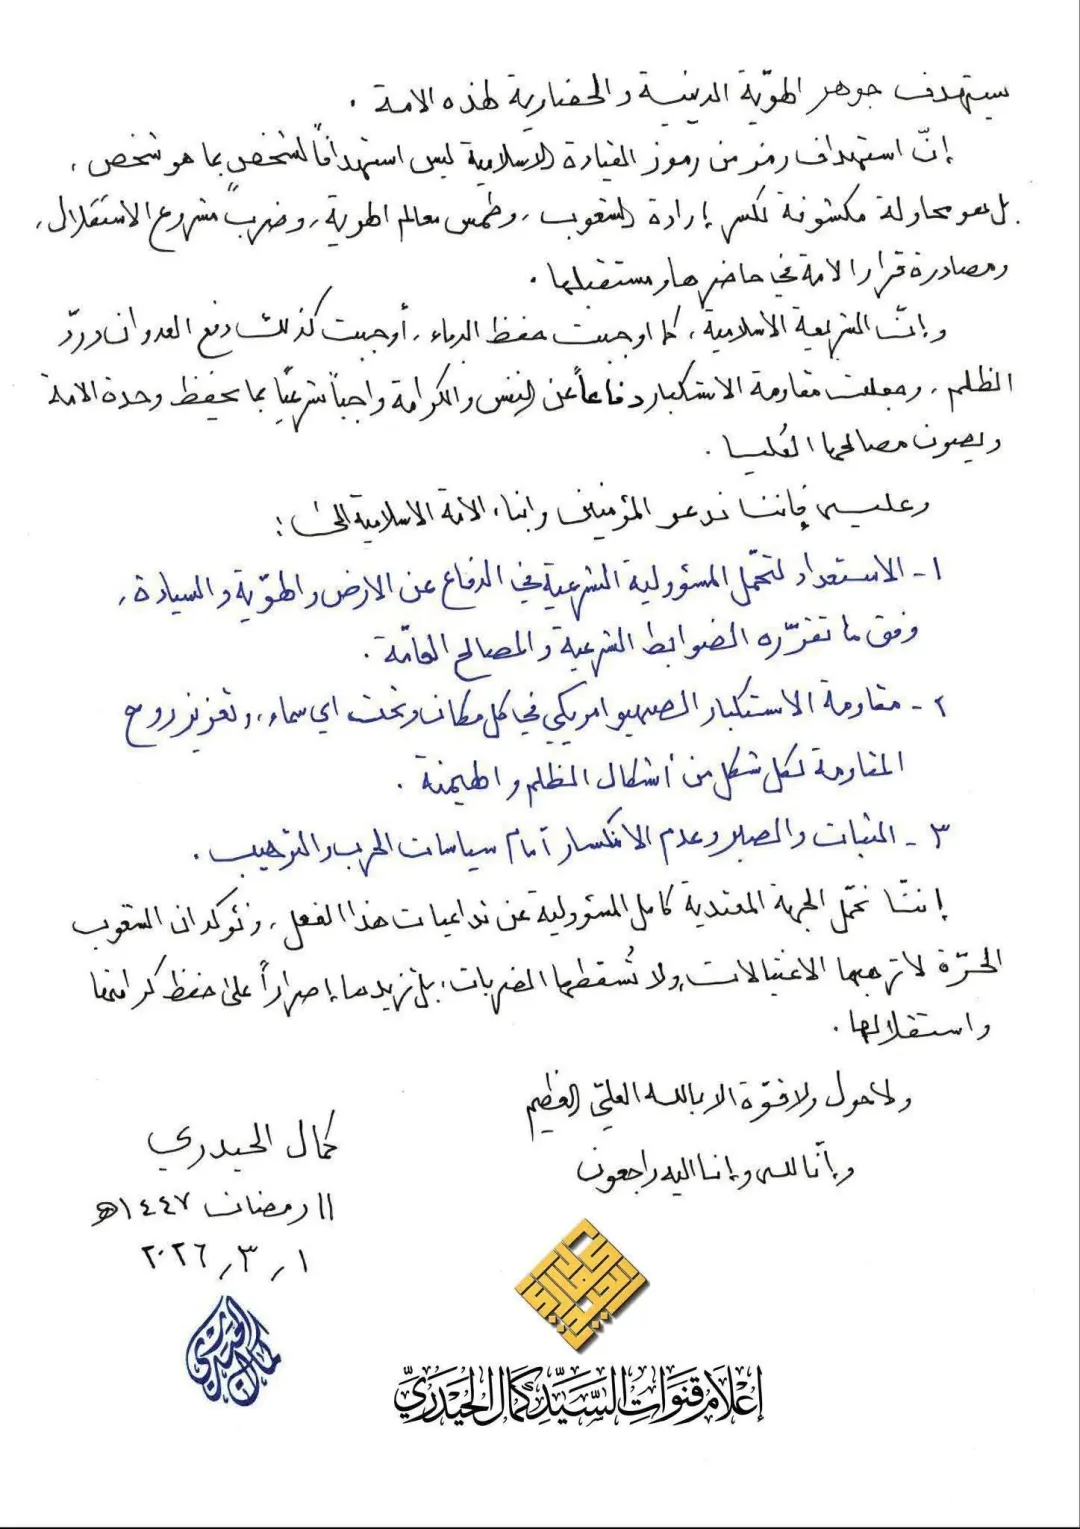 يستهدف جوهر الهوّية الدينية والحضارية لهذه الامة .
إنّ استهداف رمز من رموز القيادة الاسلامية ليس استهدافاً لشخص بما هو شخص ،
بل هو محاولة مكشوفة لكسر إرادة الشعوب ، وطمس معالم الهوية ، وضرب مشروع الاستقلال ،
ومصادرة قرار الامة في حاضرها ومستقبلها .
وإنّ الشريعة الاسلامية ، كما اوجبت حفظ الدماء ، أوجبت كذلك دفع العدوان وردّ
الظلم ، وجعلت مقاومة الاستكبار دفاعاً عن النفس والكرامة واجباً شرعيّاً بما يحفظ وحدة الامة
ويصون مصالحها العُليا .
وعليه فإننا ندعو المؤمنين وابناء الامة الاسلامية إلى :
١- الاستعداد لتحمّل المسؤولية الشرعية في الدفاع عن الارض والهوّية والسيادة ،
وفق ما تقرّره الضوابط الشرعية والمصالح العامّة .
٢- مقاومة الاستكبار الصهيوامريكي في كل مكان وتحت اي سماء ، وتعزيز روح
المقاومة لكل شكل من أشكال الظلم والهيمنة .
٣- الثبات والصبر وعدم الانكسار أمام سياسات الحرب والترهيب .
إننّا نحمّل الجهة المعتدية كامل المسؤولية عن تداعيات هذا الفعل ، ونؤكد ان الشعوب
الحرّة لا ترهبها الاغتيالات ولا تُسقطها الضربات ، بل تزيدها إصراراً على حفظ كرامتها
واستقلالها .
ولا حول ولا قوّة الا بالله العليّ العظيم
وإنّا لله وإنا اليه راجعون
كمال الحيدري
١١ رمضان ١٤٤٧هـ
١ ، ٣ ، ٢٠٢٦
كمال الحيدري
إعلام قنوات السَّيِّد كمال الحيدريّ